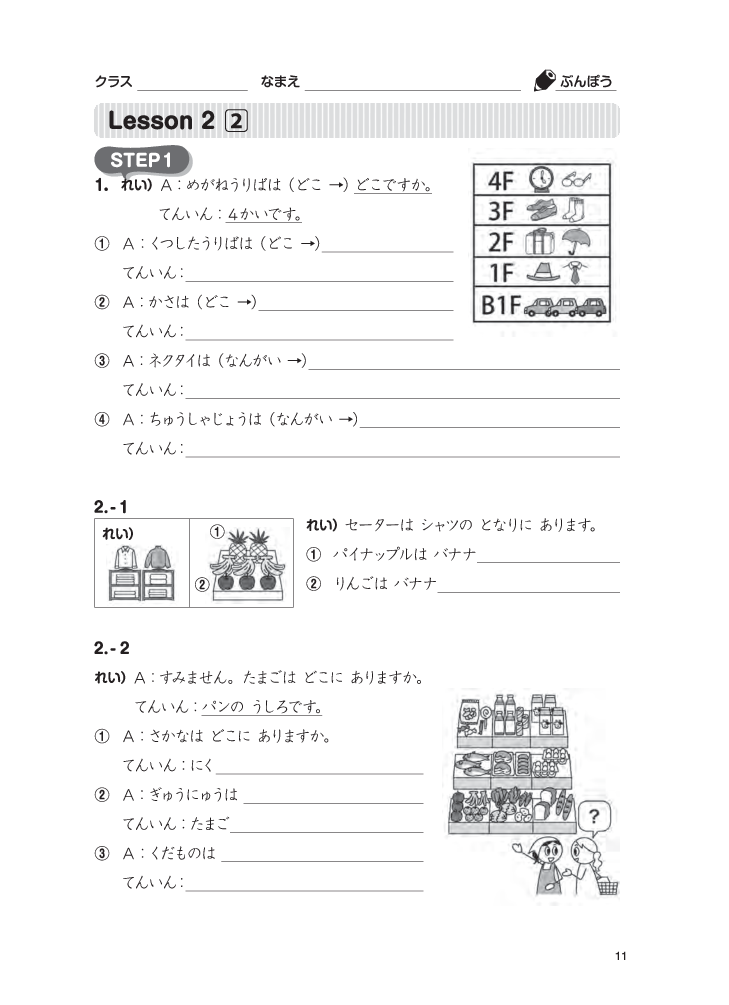 クラス なまえ ぶんぽう
Lesson 2 2
STEP1
1. れい) A:めがねうりばは(どこ →)どこですか。
てんいん:4かいです。
① A:くつしたうりばは(どこ →)
てんいん:
② A:かさは(どこ →)
てんいん:
③ A:ネクタイは(なんがい →)
てんいん:
④ A:ちゅうしゃじょうは(なんがい →)
てんいん:
4F
3F
2F
1F
B1F
2.-1
れい)
①
②
れい) セーターは シャツの となりに あります。
① パイナップルは バナナ
② りんごは バナナ
2.-2
れい) A:すみません。たまごは どこに ありますか。
てんいん:パンの うしろです。
① A:さかなは どこに ありますか。
てんいん:にく
② A:ぎゅうにゅうは
てんいん:たまご
③ A:くだものは
てんいん:
?
11